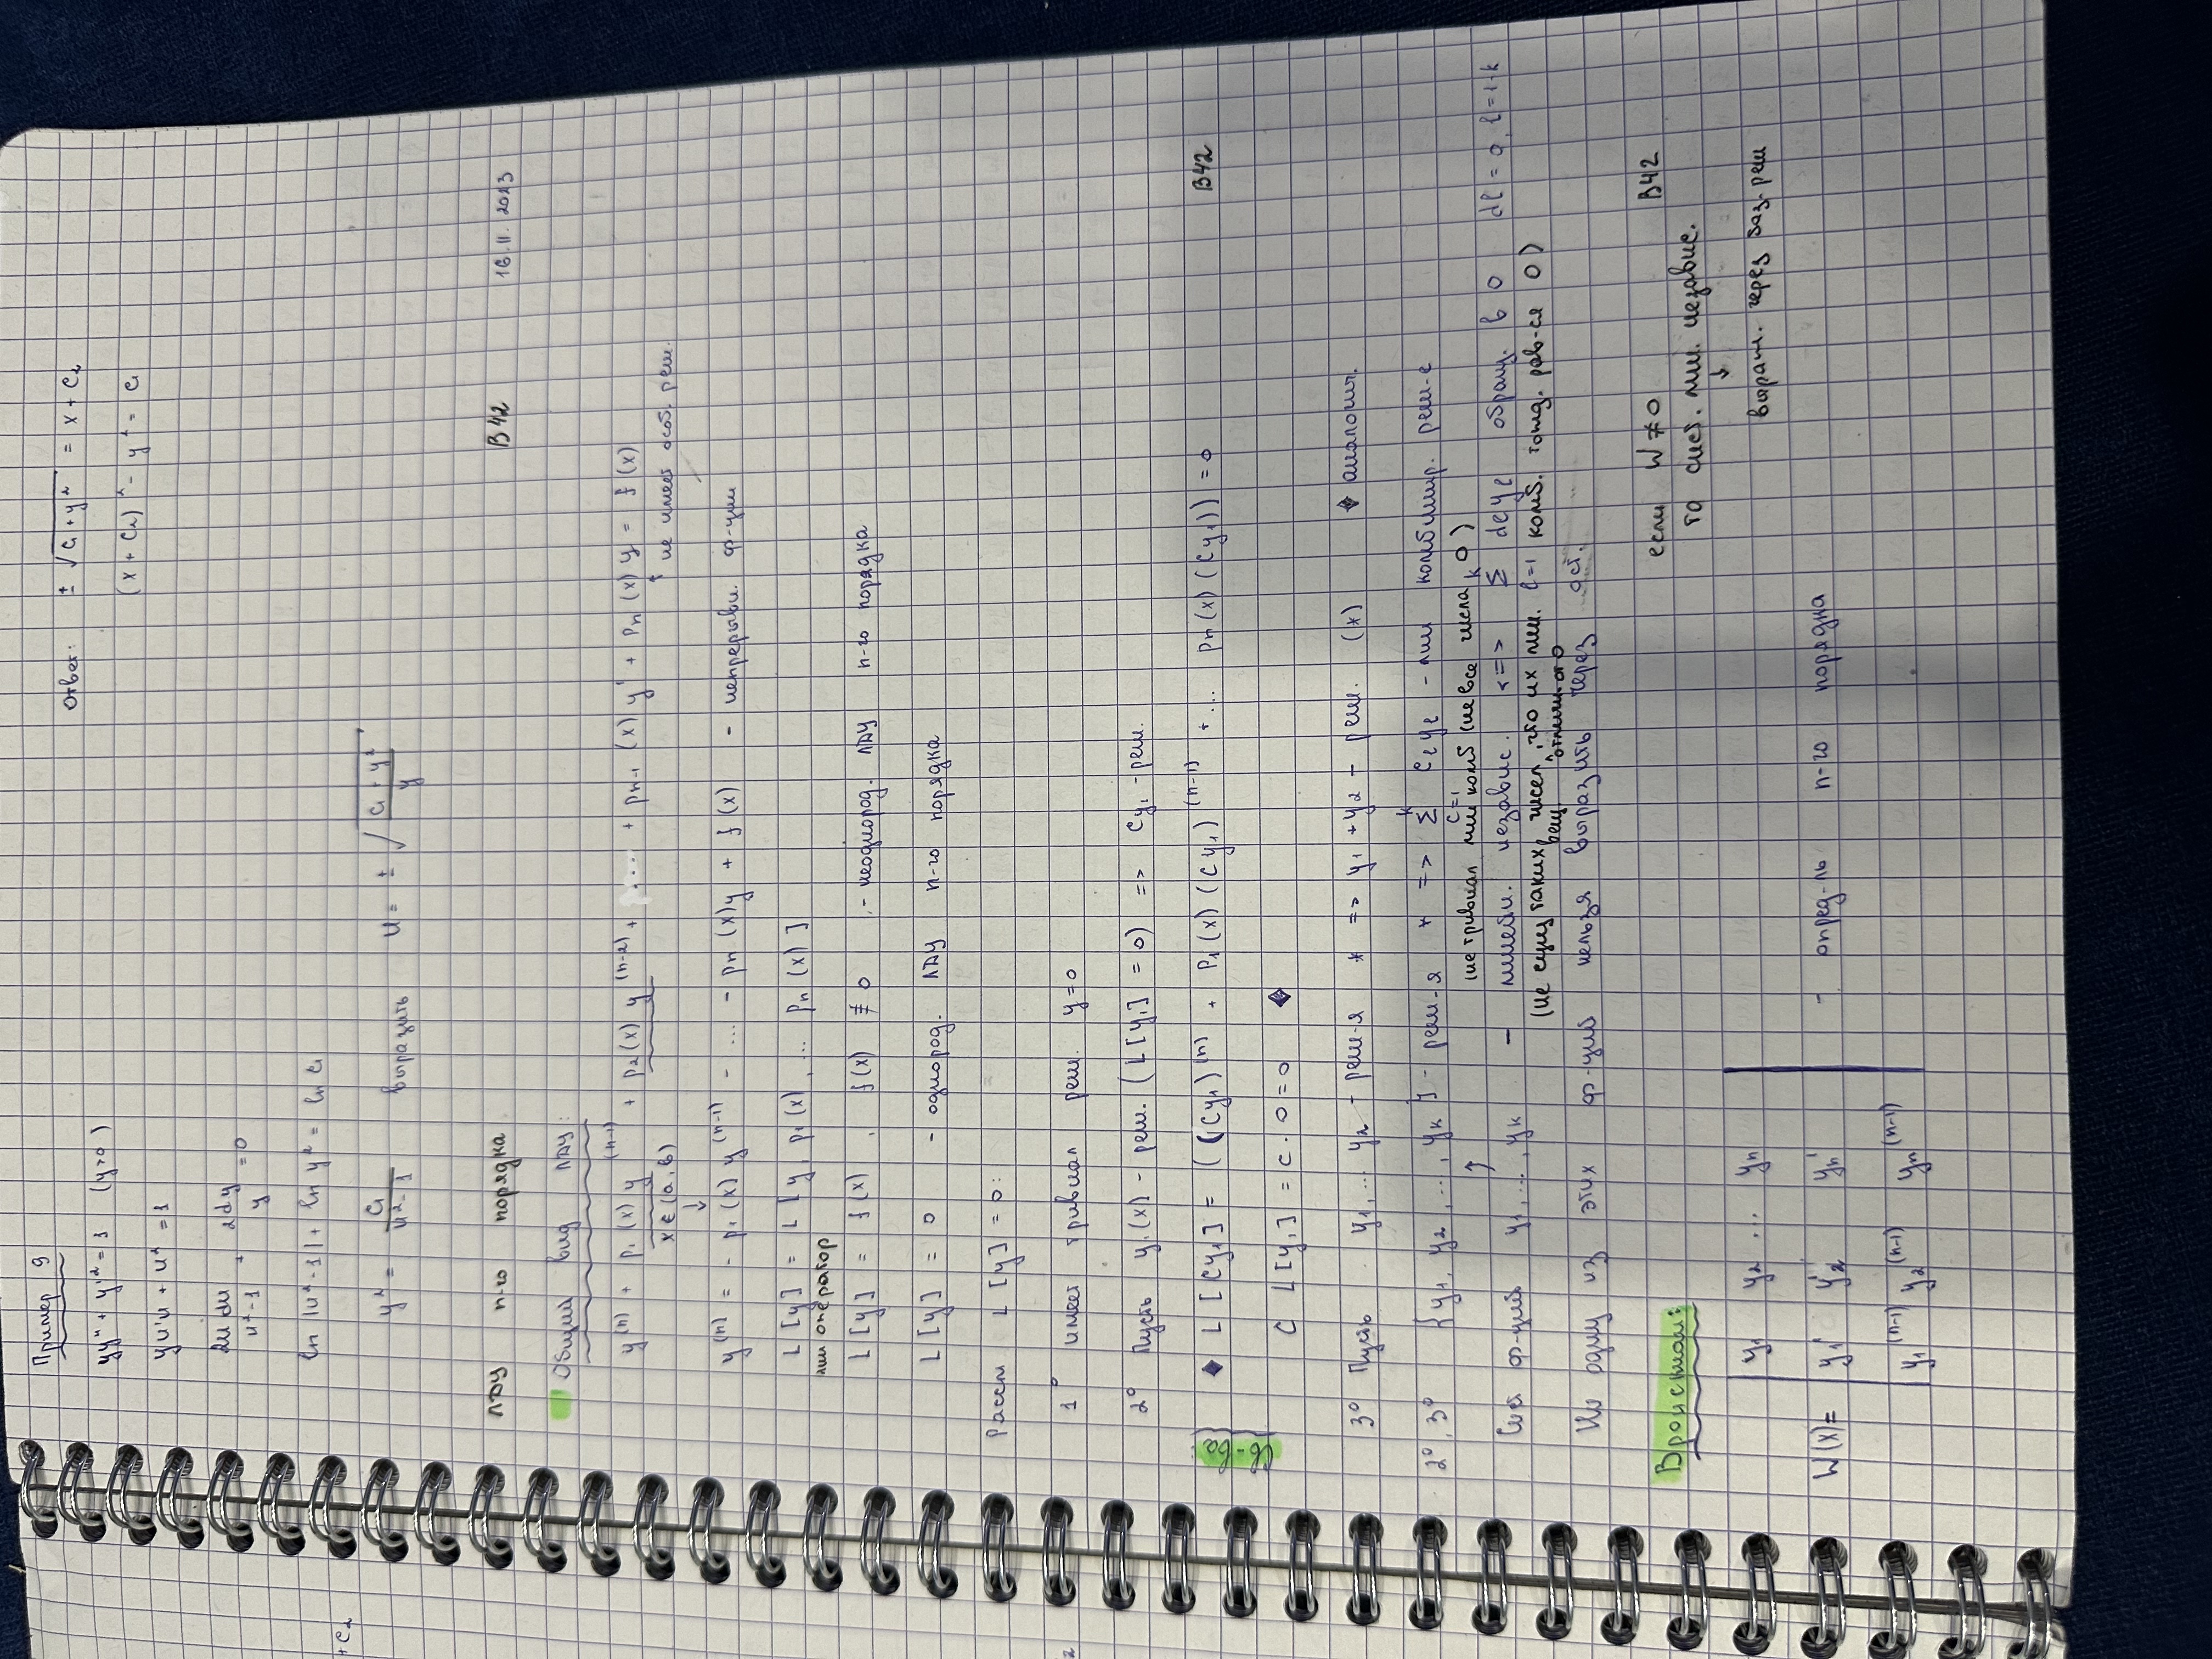 Пример 9
yy'' + y'² = 1 (y>0)
yu'u + u² = 1
2u du / u²-1 + 2dy / y = 0
ln |u²-1| + ln y² = ln C₁
y² = C₁ / u²-1 выразить u = ± √ C₁ + y² / y
Ответ: ± √C₁ + y² = x + C₂
(x + C₂)² - y² = C₁
+C₂
ЛДУ n-го порядка B42 16.11.2023
Общий вид ЛДУ:
y⁽ⁿ⁾ + p₁(x) y⁽ⁿ⁻¹⁾ + p₂(x) y⁽ⁿ⁻²⁾ + ... + pₙ₋₁(x) y' + pₙ(x) y = f(x)
x ∈ (a, b) ↑ не имеет особ. реш.
↓
y⁽ⁿ⁾ = - p₁(x) y⁽ⁿ⁻¹⁾ - ... - pₙ(x)y + f(x) - непрерывн. ф-ции
L[y] = L[y, p₁(x), ... pₙ(x)]
лин оператор
L[y] = f(x), f(x) ≢ 0 - неоднород. ЛДУ n-го порядка
L[y] = 0 - однород. ЛДУ n-го порядка
Рассм L[y] = 0:
1° имеет тривиал реш. y=0
2° Пусть y₁(x) - реш. (L[y₁] = 0) => Cy₁ - реш.
Св-ва:
◆ L[Cy₁] = ((Cy₁)⁽ⁿ⁾ + P₁(x)(Cy₁)⁽ⁿ⁻¹⁾ + ... Pₙ(x)(Cy₁)) = 0 B42
C L[y₁] = C · 0 = 0 ◆
3° Пусть y₁, ... y₂ - реш-я * => y₁ + y₂ - реш. (x) ◆ аналогич.
2°, 3° {y₁, y₂, ..., yₖ} - реш-я * => Σ Cℓyℓ - лин комбинир. реш-е
(не тривиал лин комб (не все числа 0)
Сист ф-ций y₁, ..., yₖ - линейн. независ. <=> Σ dℓyℓ обращ. в 0 dℓ = 0, ℓ=1÷k
(не сущ таких вещ чисел, отличн. от 0 что их лин. комб. тожд. рав-ся 0)
Ни одну из этих ф-ций нельзя выразить через ост.
Вронскиан:
если W ≠ 0 B42
то сист. лин. независ.
↓
выраж. через баз. реш
y₁ y₂ ... yₙ
W(x) = y₁' y₂' yₙ' - опред-ль n-го порядка
y₁⁽ⁿ⁻¹⁾ y₂⁽ⁿ⁻¹⁾ yₙ⁽ⁿ⁻¹⁾